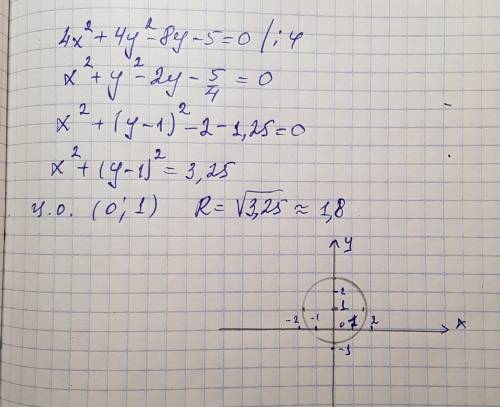 4x² + 4y² - 8y - 5 = 0 / : 4
x² + y² - 2y - 5/4 = 0
x² + (y-1)² - 2 - 1,25 = 0
x² + (y-1)² = 3,25
ц.о. (0; 1) R = √3,25 ≈ 1,8
y
2
1
-2 -1 0 1 2 x
-1